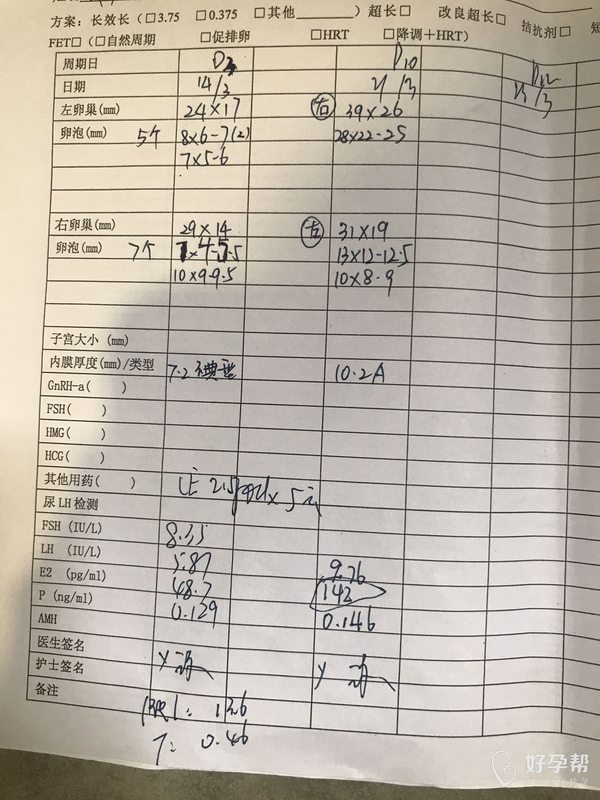 方案: 长效长 (□3.75 □0.375 □其他______) 超长□ 改良超长□ 拮抗剂□ 短
FET□ (□自然周期 □促排卵 □HRT □降调+HRT)
周期日 D10 D12
日期 14/3
左卵巢(mm) 24×17 右 39×26
卵泡(mm) 5个 8×6-7(2) 28×22-25
7×5-6
右卵巢(mm) 29×14 左 31×19
卵泡(mm) 7个 13×12-12.5
10×9-9.5 10×8-9
子宫大小 (mm)
内膜厚度(mm)/类型 7.2 10.2A
GnRH-a( )
FSH( )
HMG( )
HCG( )
其他用药( )
尿LH检测
FSH (IU/L) 8.35
LH (IU/L) 5.87 9.76
E2 (pg/ml) 48.7 142
P (ng/ml) 0.129 0.146
AMH
医生签名
护士签名
备注
PRL: 13.6
T: 0.46
好孕帮